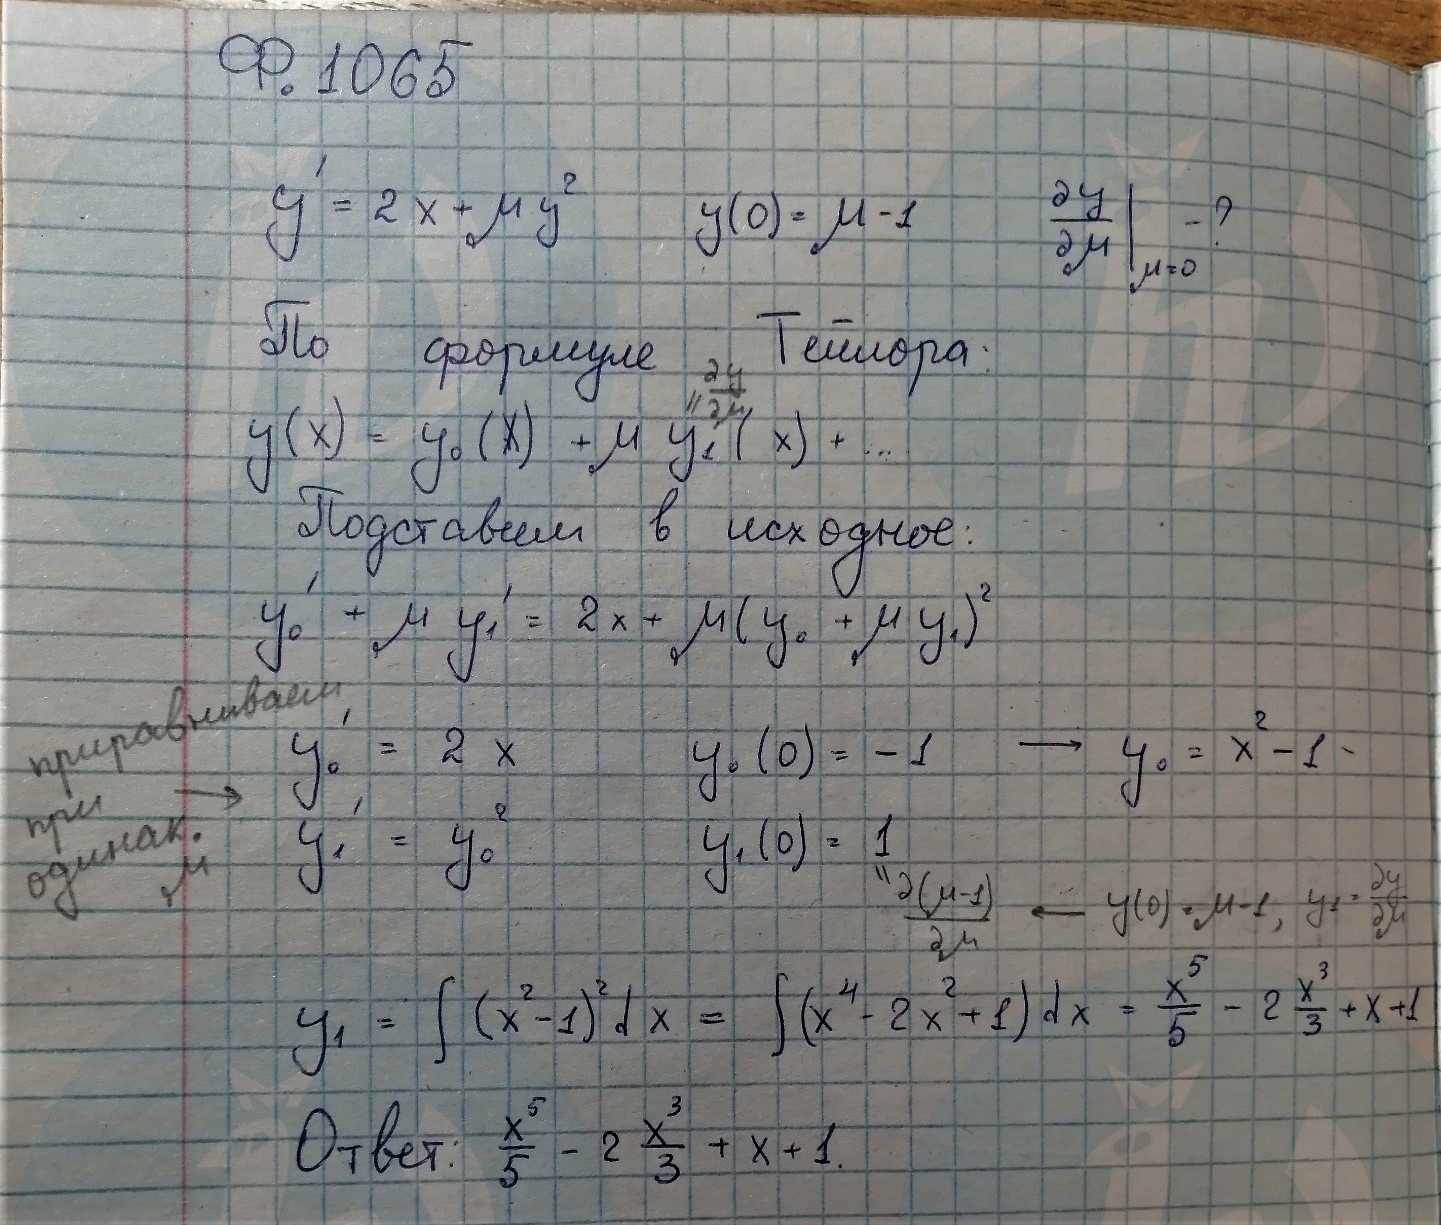 Ф. 1065
y' = 2x + μy² y(0) = μ - 1 ∂y/∂μ |μ=0 - ?
По формуле Тейлора:
y(x) = y₀(x) + μ y₁(x) + ...
" ∂y/∂μ
Подставим в исходное:
y₀' + μ y₁' = 2x + μ(y₀ + μ y₁)²
приравниваем при одинак. μ →
y₀' = 2x y₀(0) = -1 → y₀ = x² - 1
y₁' = y₀² y₁(0) = 1
" ∂(μ-1)/∂μ ← y(0) = μ-1, y₁ = ∂y/∂μ
y₁ = ∫(x² - 1)² dx = ∫(x⁴ - 2x² + 1) dx = x⁵/5 - 2 x³/3 + x + 1
Ответ: x⁵/5 - 2 x³/3 + x + 1.